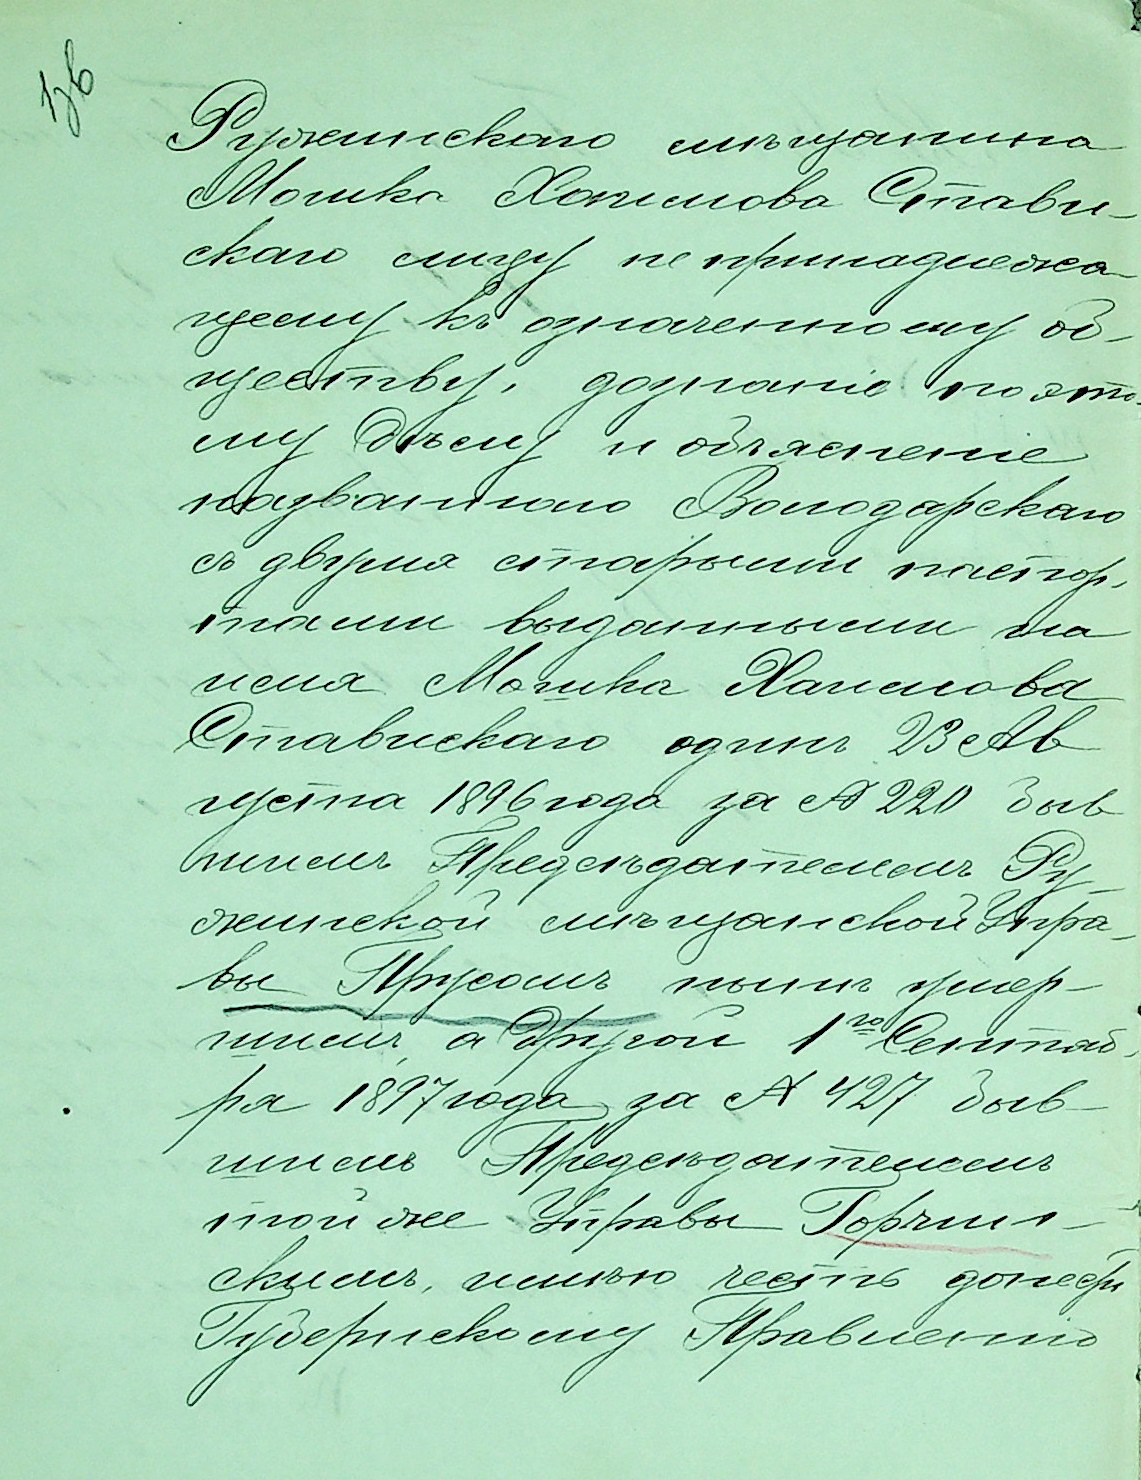 Ружинскаго мѣщанина
Мошка Хаимова Стави-
скаго лицу непринадлежа-
щему къ означенному об-
ществу, дознаніе поэто-
му дѣлу и объясненіе
названнаго Володарскаго
съ двумя старыми паспор-
тами выданными на
имя Мошка Хаимова
Ставискаго одинъ 23 Ав
густа 1896 года за № 220 быв
шимъ Предсѣдателемъ Ру-
жинской мѣщанской Упра-
вы Прусомъ нынѣ умер-
шимъ, а другой 1го Сентяб-
ря 1897 года за № 427 быв-
шимъ Предсѣдателемъ
той же Управы Горчин-
скимъ, имѣю честь донести
Губернскому Правленію